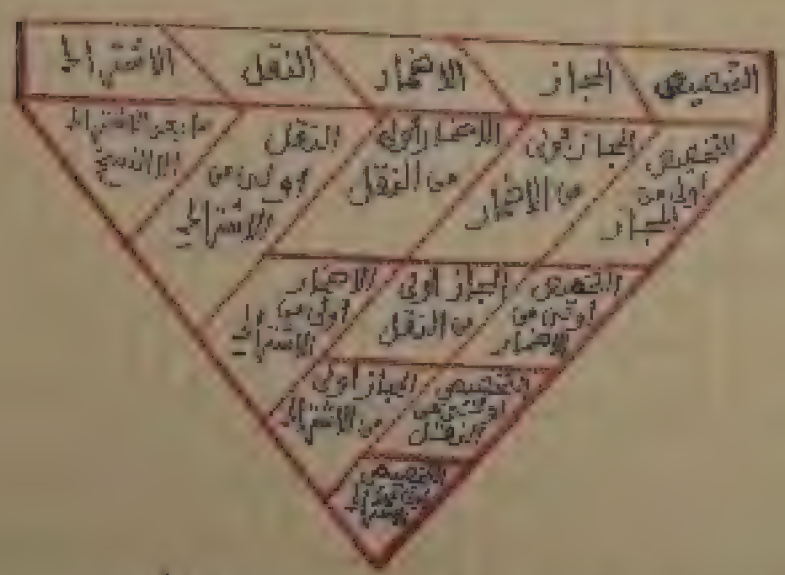 التخصيص
المجاز
الاضمار
النقل
الاشتراك
التخصيص
اولى من
المجاز
المجاز أولى
من الاضمار
الاضمار أولى
من النقل
النقل
اولى من
الاشتراك
ما بعد الاشتراك
الا النسخ
التخصيص
اولى من
الاضمار
المجاز اولى
من النقل
الاضمار
اولى من
الاشتراك
التخصيص
اولى من
النقل
المجاز اولى
من الاشتراك
التخصيص
اولى من
الاشتراك